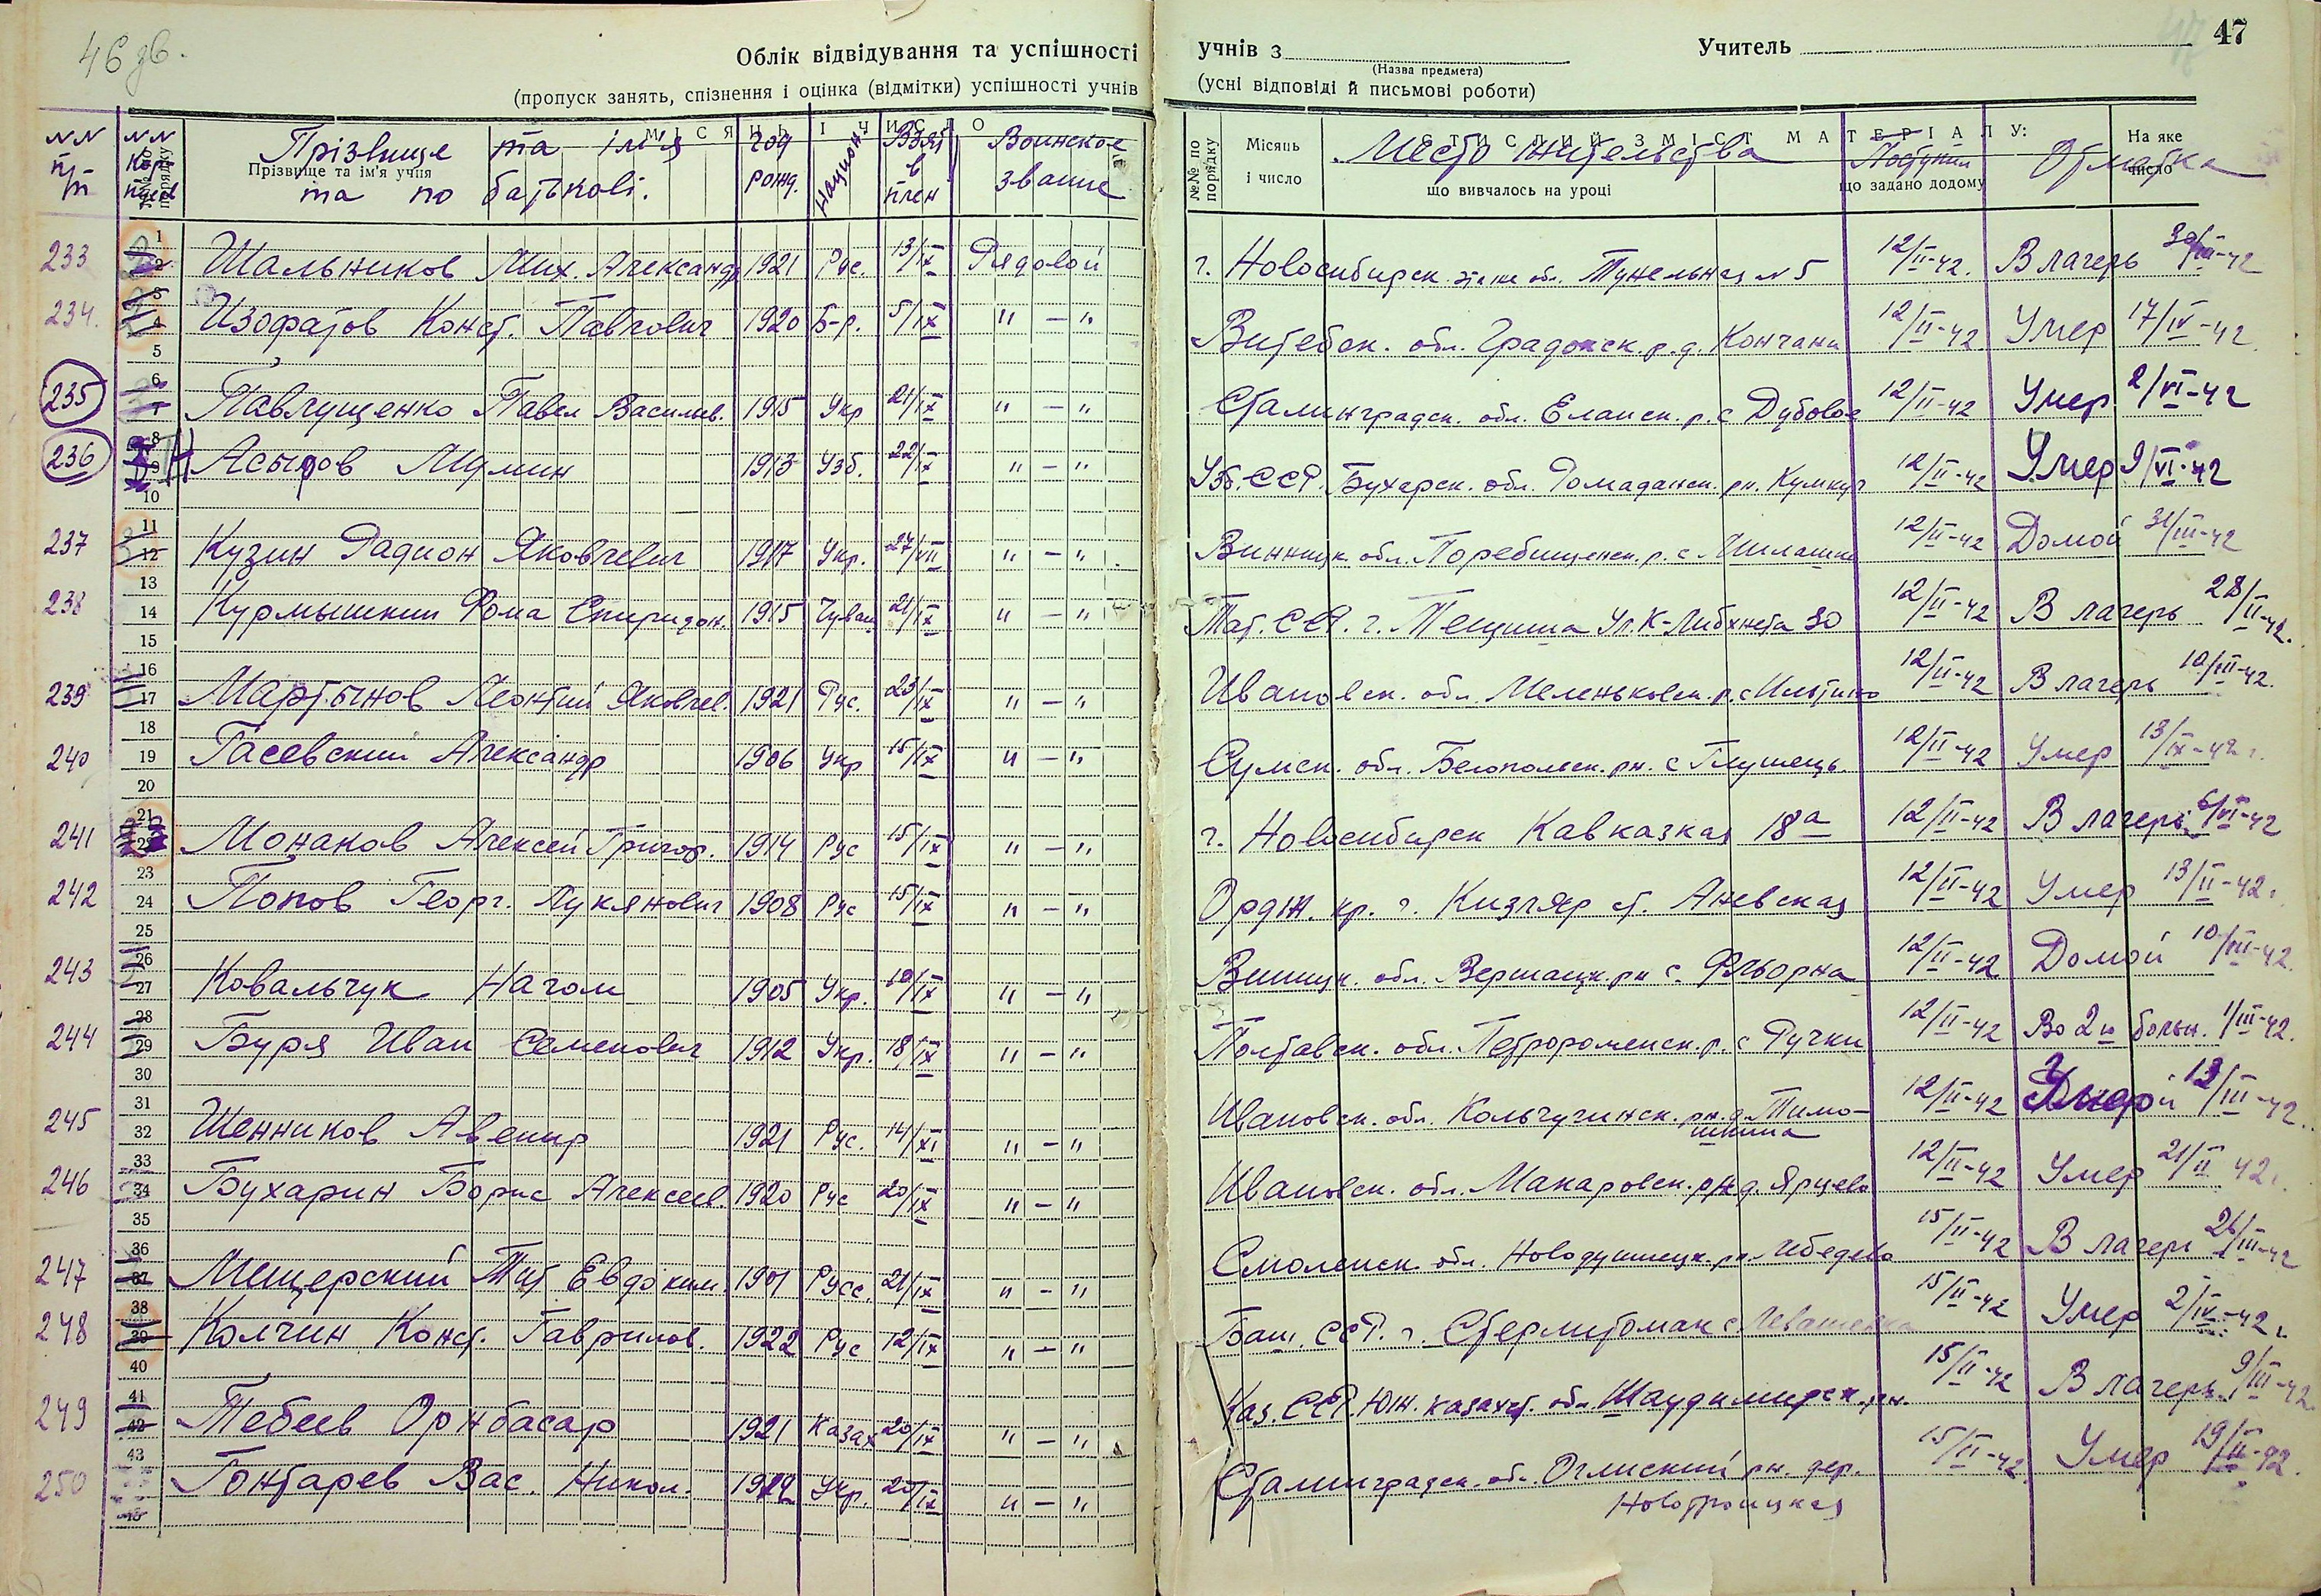 46 зв.
Облік відвідування та успішності учнів з
(Назва предмета)
Учитель
47
(пропуск занять, спізнення і оцінка (відмітки) успішності учнів (усні відповіді й письмові роботи)
NN п/п
NN
№№ по порядку
Прізвище та ім'я учня
Прізвище та ім'я та по батькові.
МІСЯЦЬ І ЧИСЛО
год рожд.
национ
Взят в плен
Воинское звание
№№ по порядку
Місяць і число
СТИСЛИЙ ЗМІСТ МАТЕРІАЛУ:
Место жительства
що вивчалось на уроці
Поступил
що задано додому
Отметка
На яке число
233 Шальников Мих. Александр 1921 Рус. 13/IX Рядовой г. Новосибирск Тунельная N 5 12/II-42. В лагерь 30/III-42
234. Изофатов Конст. Павлович 1920 Б-р. 5/IX " — " Витебск. обл. Градокск. р. д. Кончани 12/II-42 Умер 17/IV-42
235 Павлущенко Павел Василив. 1915 Укр 21/IX " — " Сталинградск. обл. Еланск. р. с Дубовое 12/II-42 Умер 2/VI-42
236 Асыров Мумин 1913 Узб. 22/IX " — " Узб. ССР. Бухарск. обл. Ромаданск. рн. 12/II-42 Умер 9/VI-42
237 Кузин Радион Яковлевич 1917 Укр. 27/VII " — " Винницк обл. Поребищенск. р. с 12/II-42 Домой 31/III-42
238 Курмышкин Фома Спиридон. 1915 Чуваш 21/IX " — " Тат. ССР. г. Ул. К-Либкнета 30 12/II-42 В лагерь 28/II-42.
239 Мартынов Леонтий Яковлев. 1921 Рус. 23/IX " — " Ивановск. обл. Меленьковск. р. с Ильтино 12/II-42 В лагерь 10/III-42.
240 Гасевский Александр 1906 Укр 15/IX " — " Сумск. обл. Белопольск. рн. с Глушець. 12/II-42 Умер 13/IX-42 г.
241 Монаков Алексей Григор. 1914 Рус 15/IX " — " г. Новосибирск Кавказкая 18а 12/II-42 В лагерь 6/VI-42
242 Попов Георг. Лукянович 1908 Рус 15/IX " — " Ордж. кр. г. Кизляр ст. Аневская 12/II-42 Умер 13/II-42 г.
243 Ковальчук Нагом 1905 Укр. 10/IX " — " Винницк. обл. рн с. Фльорна 12/II-42 Домой 10/III-42.
244 Буря Иван Семенович 1912 Укр. 18/IX " — " Полтавск. обл. Петророменск. р. с Ручки 12/II-42 Во 2й больн. 1/III-42.
245 Шенников Авенир 1921 Рус. 14/XI " — " Ивановск. обл. Кольчугинск. рн. д. Тимо-
шкина 12/II-42 Умер 13/III-42.
246 Бухарин Борис Алексеев. 1920 Рус 20/IX " — " Ивановск. обл. Макаровск. рн д. Ярцево 12/II-42 Умер 21/II 42 г.
247 Мещерский Тит Евдоким. 1901 Русс. 21/IX " — " Смоленск. обл. рн. Лебедево 15/II-42 В лагерь 26/III-42
248 Колчин Конст. Гаврилов. 1922 Рус 12/IX " — " Баш. ССР. г. Стерлитомак с. 15/II-42 Умер 2/IV-42 г.
249 Тебеев Орнбасар 1921 Казах 20/IX " — " Каз. ССР. Южн. казахст. обл. Шаудимирск. рн. 15/II-42 В лагерь 9/III-42.
250 Гонтарев Вас. Никол. 1922 Укр. 20/IX " — " Сталинградск. обл. рн. дер.
Новотроицкая 15/II-42 Умер 19/II-42.